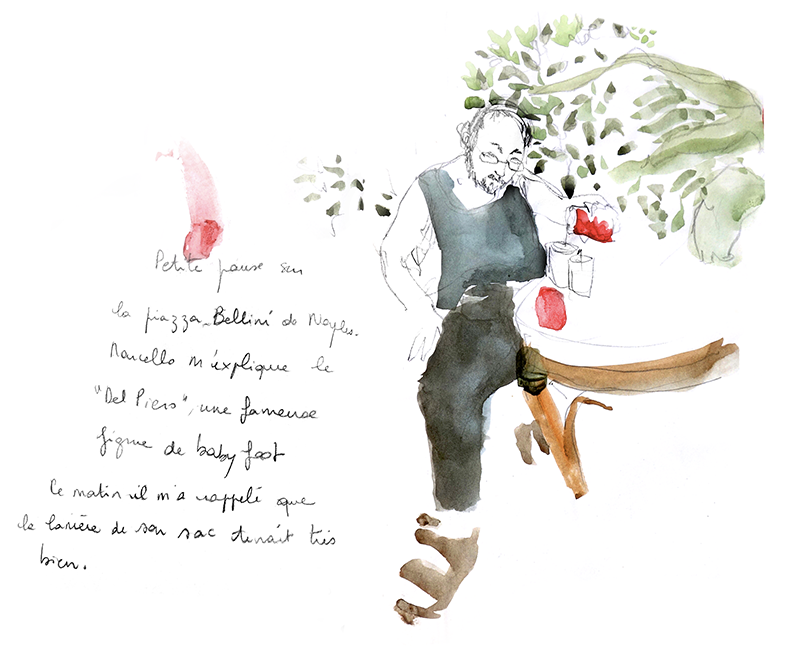 Petite pause sur
la piazza Bellini de Naples.
Marcello m'explique le
"Del Piero", une fameuse
figure de baby foot
Ce matin il m'a rappelé que
la lanière de son sac tenait très
bien.